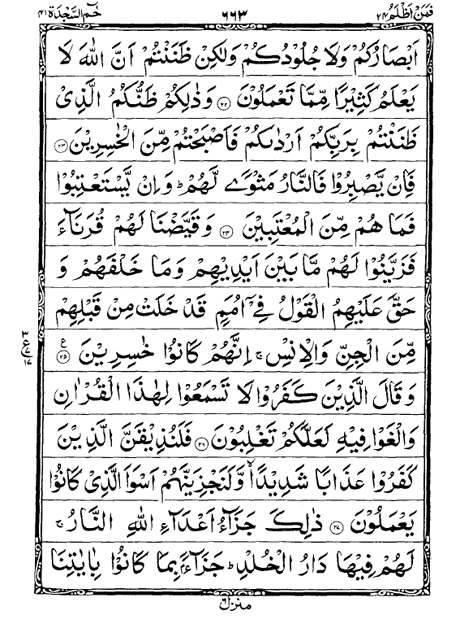 فمن اظلم ٢٤
٦٦٣
حٰم السجدة ٤١
اَبْصَارُكُمْ وَلَا جُلُوْدُكُمْ وَلٰكِنْ ظَنَنْتُمْ اَنَّ اللّٰهَ لَا
يَعْلَمُ كَثِيْرًا مِّمَّا تَعْمَلُوْنَ ﴿٢٢﴾ وَذٰلِكُمْ ظَنُّكُمُ الَّذِىْ
ظَنَنْتُمْ بِرَبِّكُمْ اَرْدٰىكُمْ فَاَصْبَحْتُمْ مِّنَ الْخٰسِرِيْنَ ﴿٢٣﴾
فَاِنْ يَّصْبِرُوْا فَالنَّارُ مَثْوًى لَّهُمْ ؕ وَاِنْ يَّسْتَعْتِبُوْا
فَمَا هُمْ مِّنَ الْمُعْتَبِيْنَ ﴿٢٤﴾ وَقَيَّضْنَا لَهُمْ قُرَنَآءَ
فَزَيَّنُوْا لَهُمْ مَّا بَيْنَ اَيْدِيْهِمْ وَمَا خَلْفَهُمْ وَ
حَقَّ عَلَيْهِمُ الْقَوْلُ فِىْٓ اُمَمٍ قَدْ خَلَتْ مِنْ قَبْلِهِمْ
مِّنَ الْجِنِّ وَالْاِنْسِ ۚ اِنَّهُمْ كَانُوْا خٰسِرِيْنَ ﴿٢٥﴾ ع
وَقَالَ الَّذِيْنَ كَفَرُوْا لَا تَسْمَعُوْا لِهٰذَا الْقُرْاٰنِ
وَالْغَوْا فِيْهِ لَعَلَّكُمْ تَغْلِبُوْنَ ﴿٢٦﴾ فَلَنُذِيْقَنَّ الَّذِيْنَ
كَفَرُوْا عَذَابًا شَدِيْدًا ۙ وَّلَنَجْزِيَنَّهُمْ اَسْوَاَ الَّذِىْ كَانُوْا
يَعْمَلُوْنَ ﴿٢٧﴾ ذٰلِكَ جَزَآءُ اَعْدَآءِ اللّٰهِ النَّارُ ۚ
لَهُمْ فِيْهَا دَارُ الْخُلْدِ ؕ جَزَآءًۢ بِمَا كَانُوْا بِاٰيٰتِنَا
منزل ٦